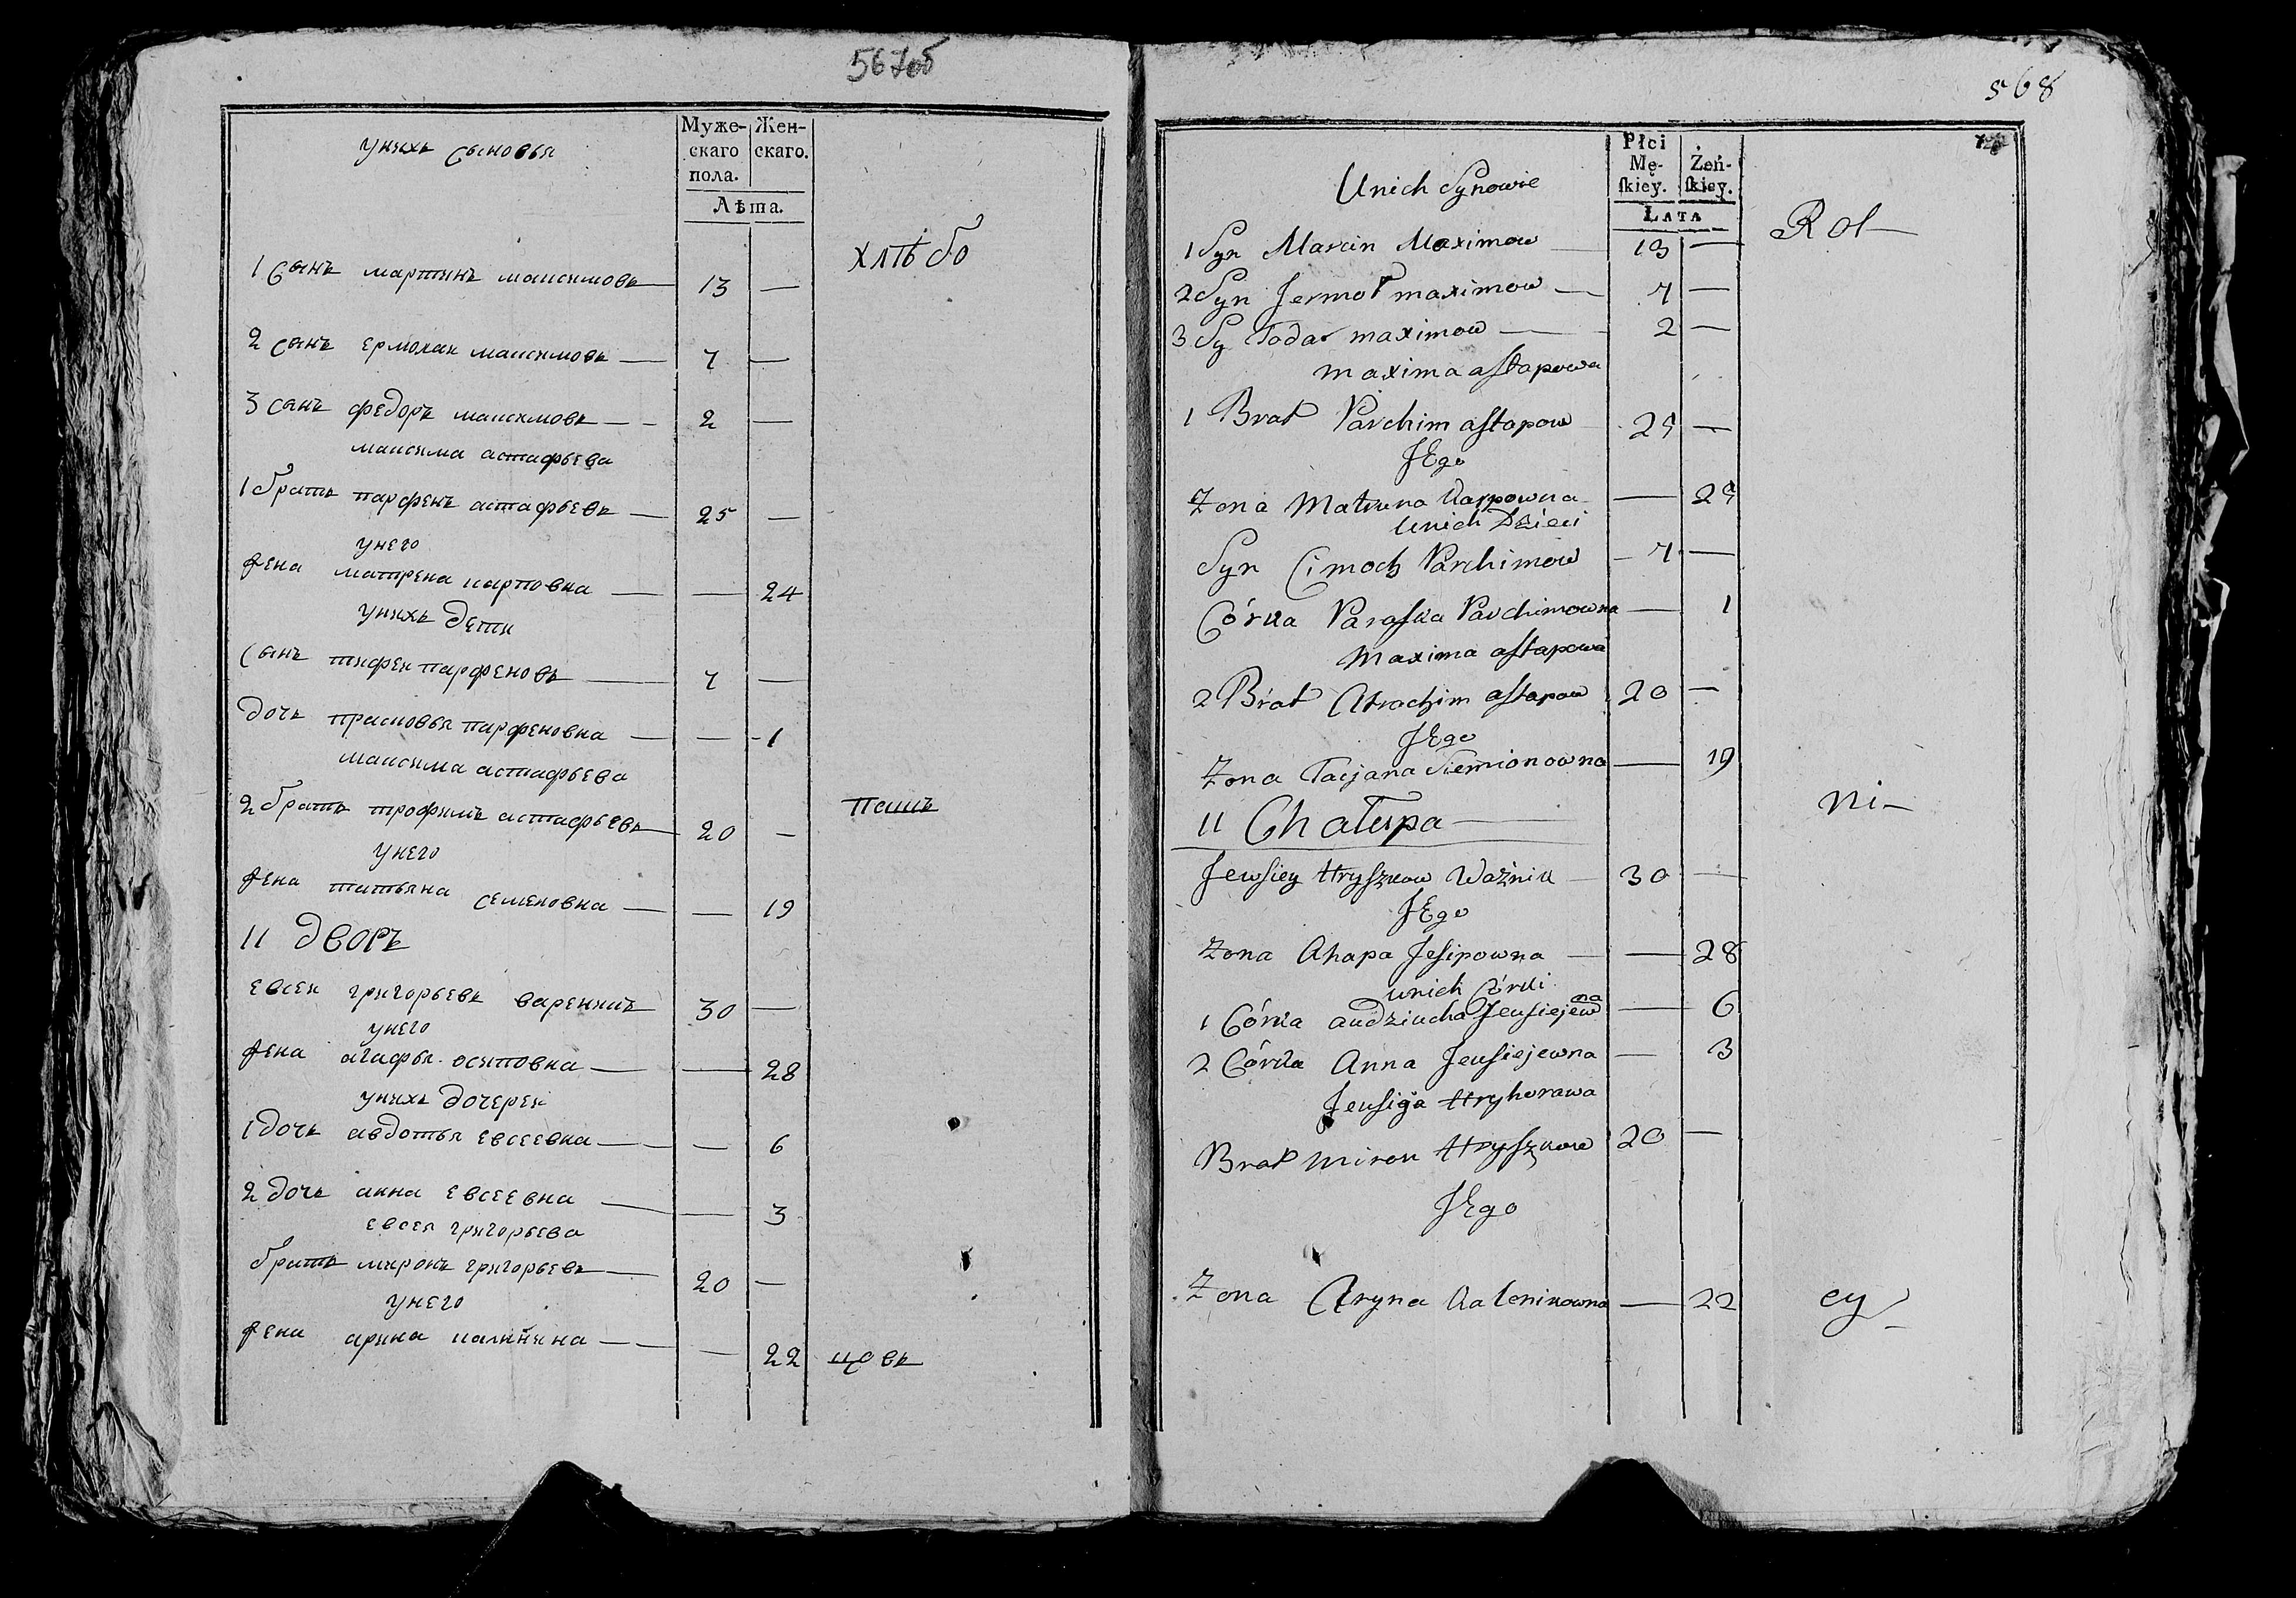 567об
унихъ сыновья
Муже-
скаго
пола.
Жен-
скаго.
Лѣта.
хлѣбо
1 сынъ мартинъ максимовъ — 13 —
2 сынъ ермолаи максимовъ — 7 —
3 сынъ федоръ максимовъ — 2 —
максима астафьева
1 братъ парфенъ астафьевъ — 25 —
унего
жена матрена карповна — — 24
унихъ дети
сынъ тифеи парфеновъ — 7 —
дочь прасковья парфеновна — — 1
максима астафьева
2 братъ трофимъ астафьевъ — 20 —
пашъ
унего
жена татьяна семеновна — — 19
11 дворъ
евсеи григорьевъ 30 —
унего
жена агафья осиповна — — 28
унихъ дочереи
1 дочь авдотья евсеевна — — 6
2 дочь анна евсеевна — — 3
евсея григорьева
братъ миронъ григорьевъ — 20 —
унего
жена арина калинина — — 22
цовъ
568
Płci
Mę-
ſkiey.
Żeń-
ſkiey.
LATA
Unich Synowie
Rol—
1 Syn Marcin Maximow — 13 —
2 Syn Jermoł maximow — 7 —
3 Sy Todar maximow — 2 —
maxima aſtapowa
1 Brat Parchim aſtapow 25 —
JEgo
Zona Matruna Karpowna — 25
Unich Dzieci
Syn Cimoch Parchimow — 7 —
Córka Paraſka Parchimowna — 1
Maxima aſtapowa
2 Brat Atrachim aſtapow 20 —
JEgo
Zona Tacjana Siemionowna — 19
11 Chałupa —
ni—
Jewsiey Hryſzkow Woźnik — 30 —
JEgo
Zona Ahapa Jesipowna — — 28
unich Córki
1 Córka audziucha Jeusiejewna — 6
2 Córka Anna Jeusiejewna — 3
Jeusieja Hryhorawa
Brat miron Hryſzkow 20 —
JEgo
Zona Aryna Kalenikowna — 22
cy—